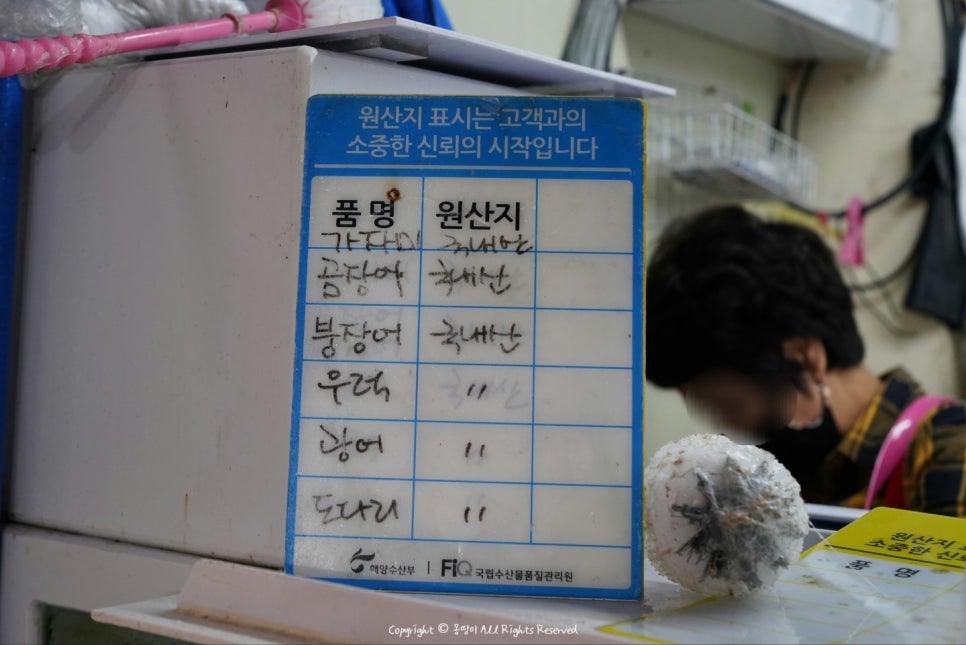 원산지 표시는 고객과의
소중한 신뢰의 시작입니다
품명 원산지
가자미 국내산
곰장어 국내산
붕장어 국내산
우럭 〃
광어 〃
도다리 〃
해양수산부 | FiQ 국립수산물품질관리원
원산지
소중한 신
품 명
Copyright © 몽땅이 All Rights Reserved